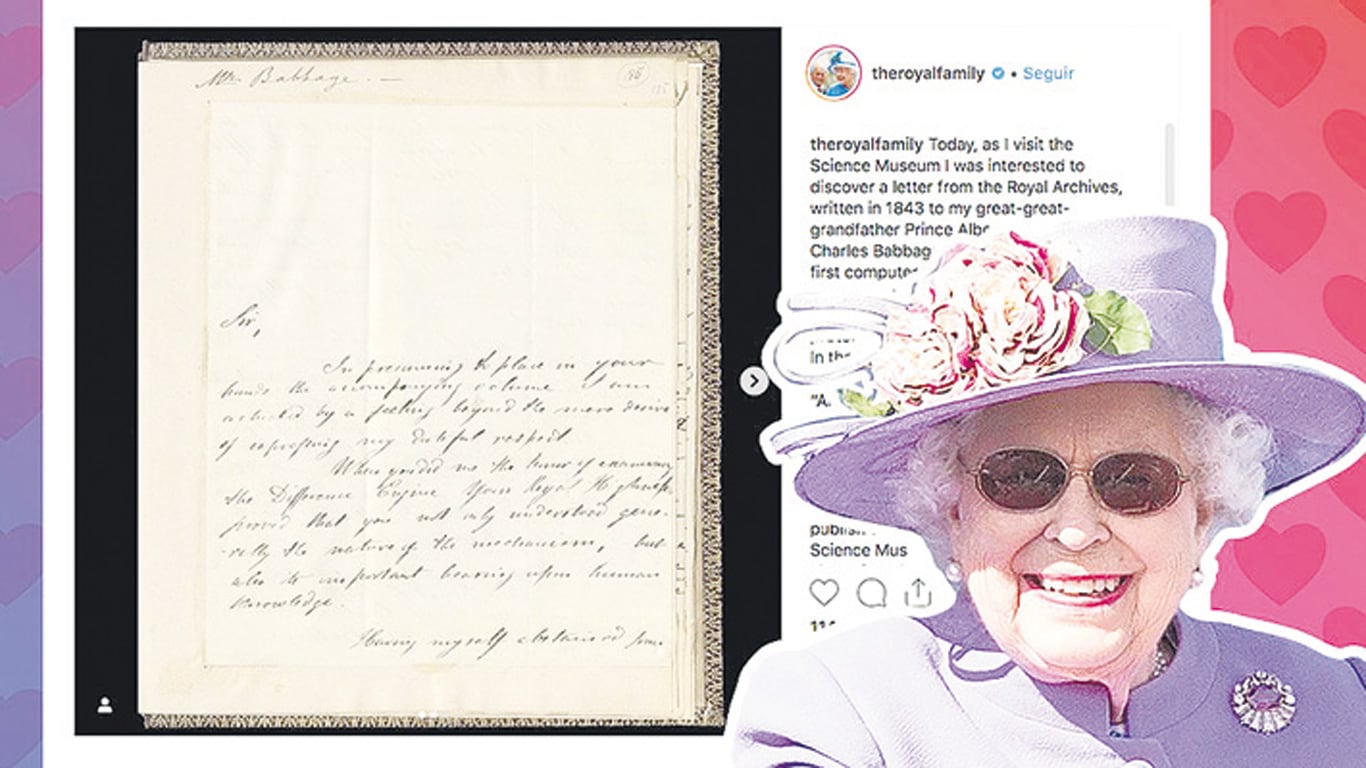 Mr. Babbage. —
Sir,
In presuming to place in your
hands the accompanying volume I am
actuated by a feeling beyond the mere desire
of expressing my dutiful respect
When you did me the honor of examining
the Difference Engine Your Royal Highness
proved that you not only understood gene-
rally the nature of the mechanism, but
also its important bearing upon human
knowledge.
Having myself abstained from
theroyalfamily • Seguir
theroyalfamily Today, as I visit the
Science Museum I was interested to
discover a letter from the Royal Archives,
written in 1843 to my great-great-
grandfather Prince Albe
Charles Babbag
first compute
In the
"A
publis
Science Mus